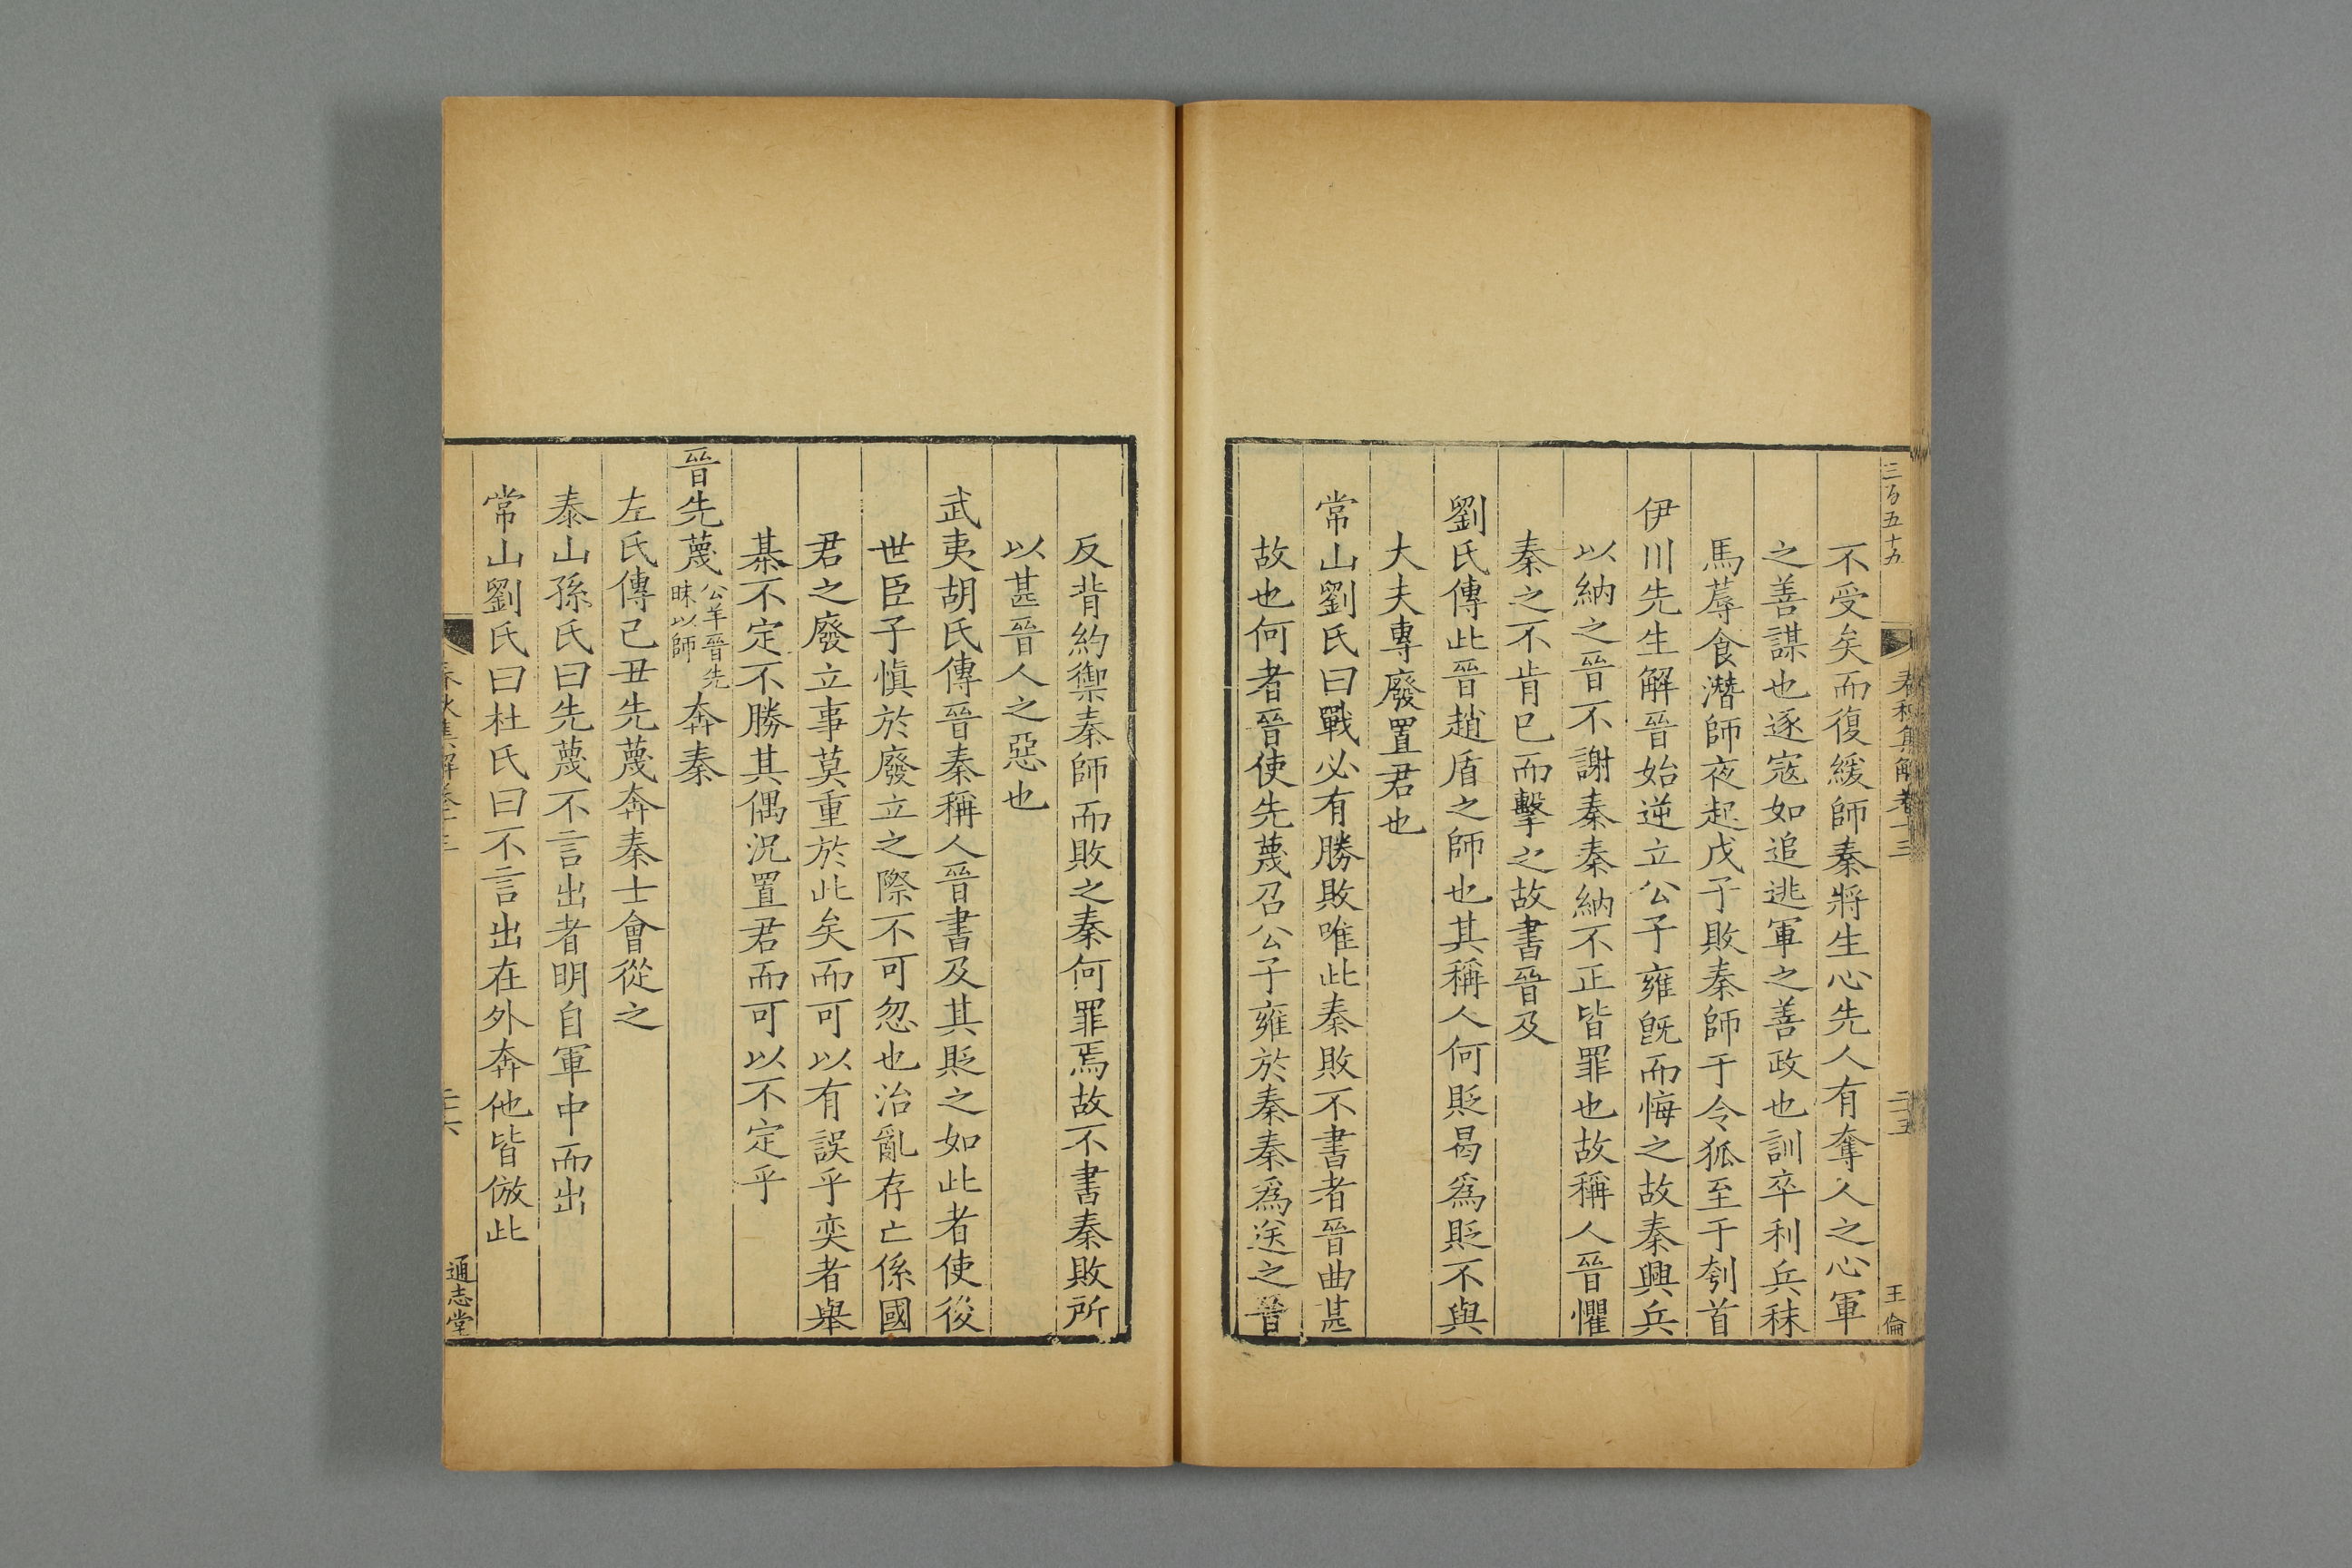 三百五十九
春秋集解卷十三
二十五
王倫
不受矣而復緩師秦將生心先人有奪人之心軍
之善謀也逐寇如追逃軍之善政也訓卒利兵秣
馬蓐食潛師夜起戊子敗秦師于令狐至于刳首
伊川先生解晉始逆立公子雍旣而悔之故秦興兵
以納之晉不謝秦秦納不正皆罪也故稱人晉懼
秦之不肯已而擊之故書晉及
劉氏傳此晉趙盾之師也其稱人何貶曷爲貶不與
大夫專廢置君也
常山劉氏曰戰必有勝敗唯此秦敗不書者晉曲甚
故也何者晉使先蔑召公子雍於秦秦爲送之晉
反背約禦秦師而敗之秦何罪焉故不書秦敗所
以甚晉人之惡也
武夷胡氏傳晉秦稱人晉書及其貶之如此者使後
世臣子愼於廢立之際不可忽也治亂存亡係國
君之廢立事莫重於此矣而可以有誤乎奕者舉
棊不定不勝其偶況置君而可以不定乎
晉先蔑公羊晉先眛以師奔秦
左氏傳己丑先蔑奔秦士會從之
泰山孫氏曰先蔑不言出者明自軍中而出
常山劉氏曰杜氏曰不言出在外奔他皆倣此
春秋集解卷十三
二十六
通志堂